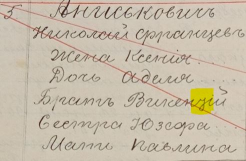 5 Аниськовичъ
Николай Францевъ
Жена Ксенія
Дочь Аделя
Братъ Викентій
Сестра Юзефа
Мать Павлина